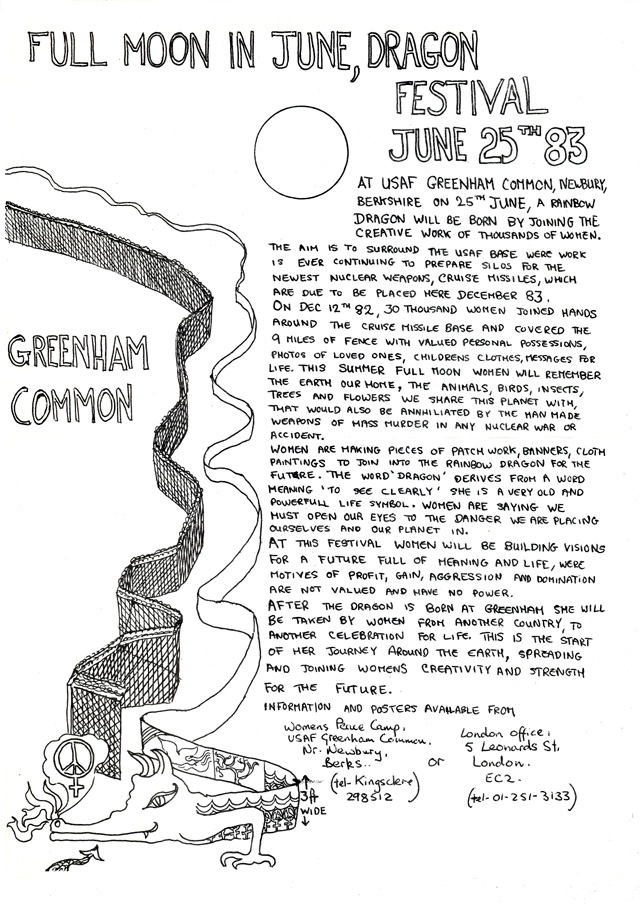 FULL MOON IN JUNE, DRAGON
FESTIVAL
JUNE 25TH 83
AT USAF GREENHAM COMMON, NEWBURY,
BERKSHIRE ON 25TH JUNE, A RAINBOW
DRAGON WILL BE BORN BY JOINING THE
CREATIVE WORK OF THOUSANDS OF WOMEN.
THE AIM IS TO SURROUND THE USAF BASE WERE WORK
IS EVER CONTINUING TO PREPARE SILOS FOR THE
NEWEST NUCLEAR WEAPONS, CRUISE MISSILES, WHICH
ARE DUE TO BE PLACED HERE DECEMBER 83.
ON DEC 12TH 82, 30 THOUSAND WOMEN JOINED HANDS
AROUND THE CRUISE MISSILE BASE AND COVERED THE
9 MILES OF FENCE WITH VALUED PERSONAL POSSESSIONS,
PHOTOS OF LOVED ONES, CHILDRENS CLOTHES, MESSAGES FOR
LIFE. THIS SUMMER FULL MOON WOMEN WILL REMEMBER
THE EARTH OUR HOME, THE ANIMALS, BIRDS, INSECTS,
TREES AND FLOWERS WE SHARE THIS PLANET WITH,
THAT WOULD ALSO BE ANNHILIATED BY THE MAN MADE
WEAPONS OF MASS MURDER IN ANY NUCLEAR WAR OR
ACCIDENT.
WOMEN ARE MAKING PIECES OF PATCH WORK, BANNERS, CLOTH
PAINTINGS TO JOIN INTO THE RAINBOW DRAGON FOR THE
FUTURE. THE WORD 'DRAGON' DERIVES FROM A WORD
MEANING 'TO SEE CLEARLY' SHE IS A VERY OLD AND
POWERFULL LIFE SYMBOL. WOMEN ARE SAYING WE
MUST OPEN OUR EYES TO THE DANGER WE ARE PLACING
OURSELVES AND OUR PLANET IN.
AT THIS FESTIVAL WOMEN WILL BE BUILDING VISIONS
FOR A FUTURE FULL OF MEANING AND LIFE, WERE
MOTIVES OF PROFIT, GAIN, AGGRESSION AND DOMINATION
ARE NOT VALUED AND HAVE NO POWER.
AFTER THE DRAGON IS BORN AT GREENHAM SHE WILL
BE TAKEN BY WOMEN FROM ANOTHER COUNTRY, TO
ANOTHER CELEBRATION FOR LIFE. THIS IS THE START
OF HER JOURNEY AROUND THE EARTH, SPREADING
AND JOINING WOMENS CREATIVITY AND STRENGTH
FOR THE FUTURE.
INFORMATION AND POSTERS AVAILABLE FROM
Womens Peace Camp,
USAF Greenham Common,
Nr. Newbury,
Berks..
(tel- Kingsclere)
298512
OR
London office:
5 Leonards St,
London.
EC2.
(tel- 01-251-3133)
GREENHAM
COMMON
3ft
WIDE